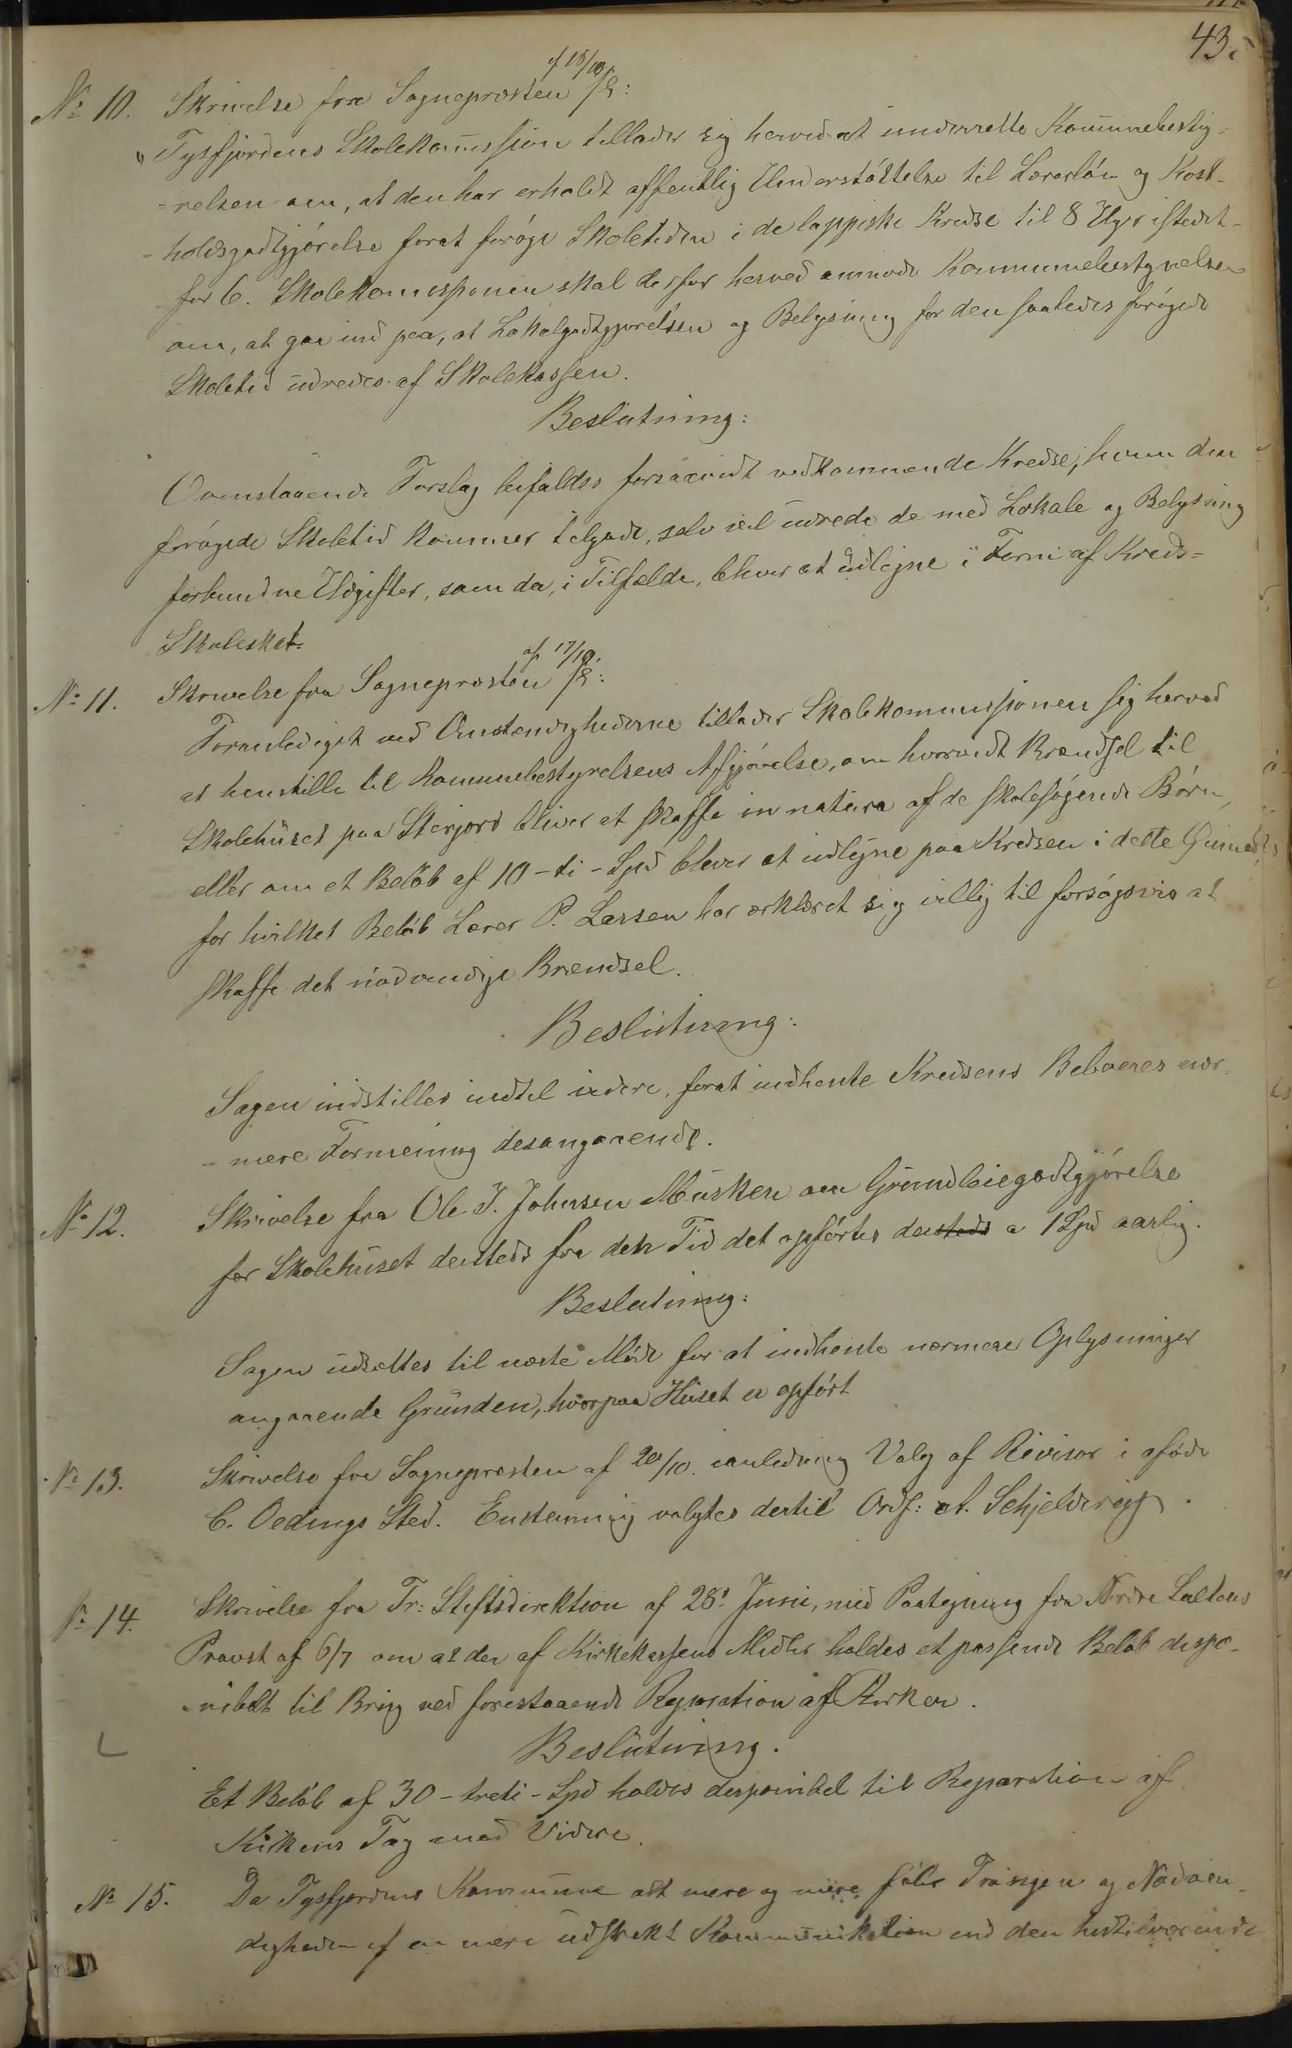 43.
af 18/10
No 10. Skrivelse fra Sognepresten
"Tysfjordens Skolekommission tillader sig herved at underrette Kommunebesty-
-relsen om, at den har erholdt offentlig Understøttelse til Lærerløn og Kost-
-holdsgodtgjørelse forat forøge Skoletiden i de lappiske Kredse til 8 Uger istedet-
for 6. Skolekommissionen skal derfor herved anmode Kommunebestyrelsen
om, at gaa ind paa, at Lokalgodtgjørelsen og Belysning for den saaledes forøgede
Skoletid udredes af Skolekassen.
Beslutning:
Ovenstaaende Forslag bifaldes forsaavidt vedkommende Kredse, hvem den
forøgede Skoletid kommer tilgode, selv vil udrede de med Lokale og Belysning
forbundne Udgifter, som da, i Tilfælde, bliver at udligne i Form af Kreds-
Skoleskat.
af 17/10.
No 11. Skrivelse fra Sognepresten
Foranlediget ved Omstændighederne tillader Skolekommissionen sig herved
at henstille til Kommunebestyrelsens Afgjørelse, om hvorvidt Brændsel til
Skolehuset paa Storjord bliver at skaffe in natura af de skolesøgende Børn,
eller om et Beløb af 10 - ti - Spd bliver at udligne paa Kredsen i dette Øiemed,
for hvilket Beløb Lærer P. Larsen har erklæret sig villig til forsøgsvis at
skaffe det nødvendige Brændsel.
Beslutning:
Sagen indstilles indtil videre, forat indhente Kredsens Beboeres nær-
-mere Formening desangaaende.
No 12. Skrivelse fra Ole J. Johnsen Musken om Grundleiegodtgjørelse
for Skolehuset dersteds fra den Tid det opførtes dersteds a 1 Spd aarlig.
Beslutning:
Sagen udsættes til næste Møde for at indhente nærmere Oplysninger
angaaende Grunden, hvorpaa Huset er opført
No 13. Skrivelse fra Sognepresten af 20/10. ianledning Valg af Revisor i afdøde
C. Oedings Sted. Enstemmig valgtes dertil Ordf: A. Schjelderup.
No 14. Skrivelse fra Tr: Stiftsdirektion af 28de Juni, med Paategning fra Nordre Saltens
Provst af 6/7 om at der af Kirkekassens Midler holdes et passende Beløb dispo-
-nibelt til Brug ved forestaaende Reparation af Kirken.
Beslutning.
Et Beløb af 30 - treti - Spd holdes disponibel til Reparation af
Kirkens Tag med Videre.
No 15. Da Tysfjordens Kommune alt mere og mere føler Trangen og Nødven-
digheden af en mere udstrakt Kommunikation end den hidtilværende